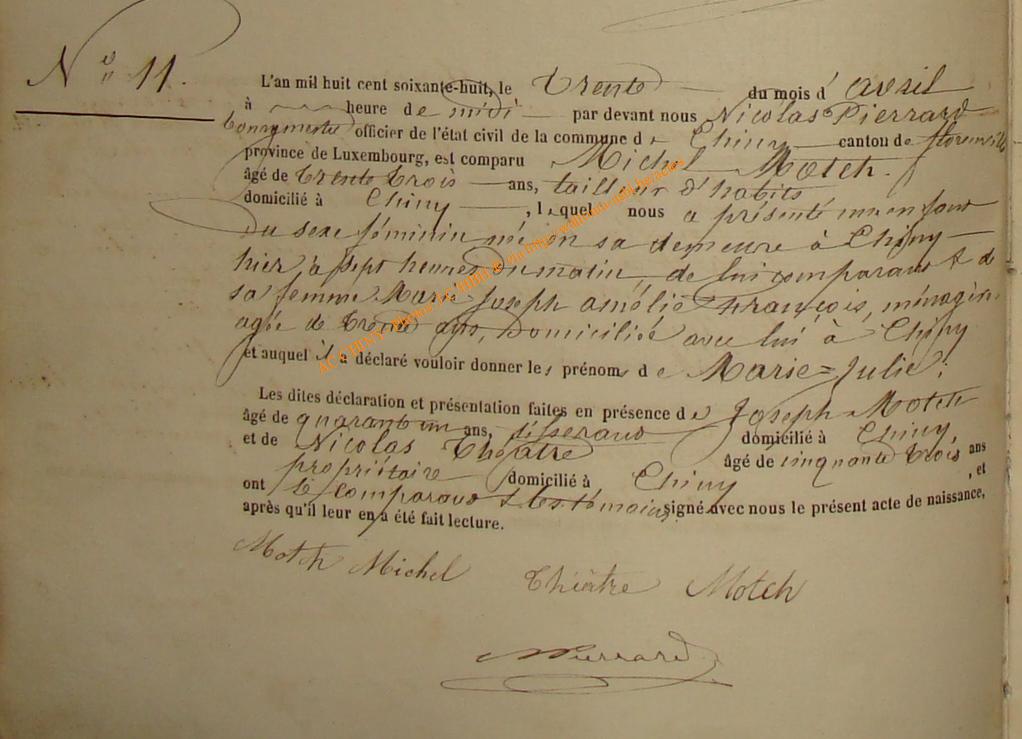 N° 11.
L'an mil huit cent soixante-huit, le trente du mois d'avril
à heure de midi par devant nous Nicolas Pierrard
bourgmestre officier de l'état civil de la commune de Chiny canton de florenville
province de Luxembourg, est comparu Michel Motch.
âgé de trente trois ans, tailleur d'habits
domicilié à Chiny, lequel nous a présenté un enfant
du sexe féminin né en sa demeure à Chiny
hier à sept heures du matin, de lui comparant & de
sa femme Marie Joseph amélie François, ménagère
agée de trente ans, domiciliée avec lui à Chiny
et auquel il a déclaré vouloir donner les prénoms de Marie=Julie;
Les dites déclaration et présentation faites en présence de Joseph Motch
âgé de quarant'un ans, tisserand domicilié à Chiny,
et de Nicolas Théâtre âgé de cinquante trois ans
propriétaire domicilié à Chiny, et
ont le comparant & les témoins signé avec nous le présent acte de naissance,
après qu'il leur en a été fait lecture.
Motch Michel Théâtre Motch
Pierrard